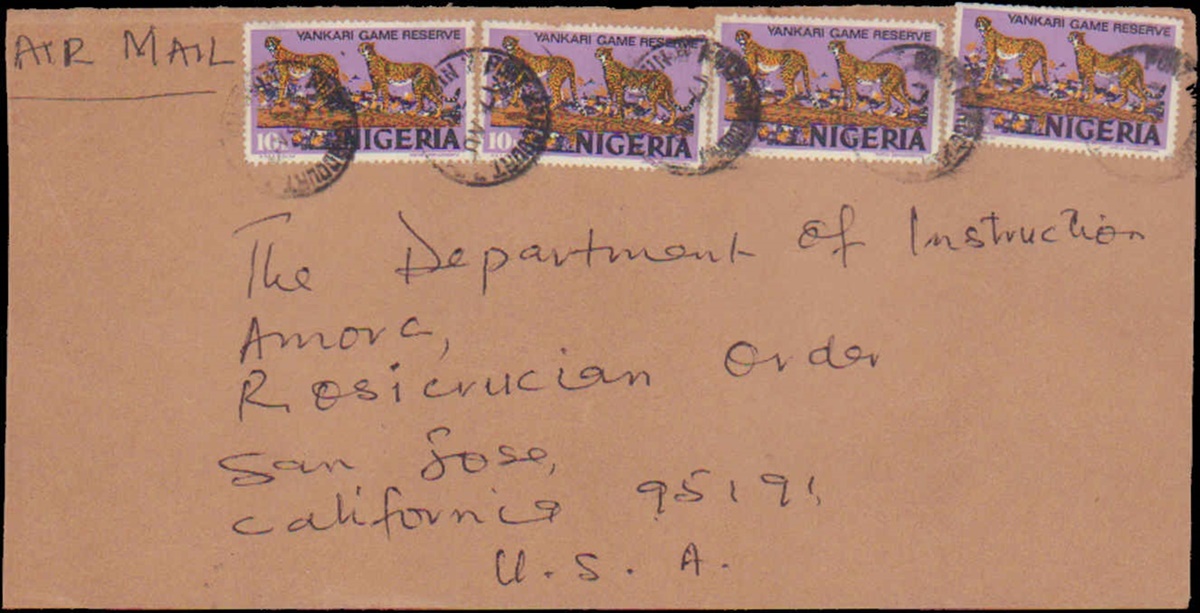 AIR MAIL
YANKARI GAME RESERVE
10
NIGERIA
YANKARI GAME RESERVE
10
NIGERIA
YANKARI GAME RESERVE
NIGERIA
YANKARI GAME RESERVE
NIGERIA
The Department of Instruction
Amorc,
Rosicrucian Order
San Jose,
California 95191,
U. S. A.